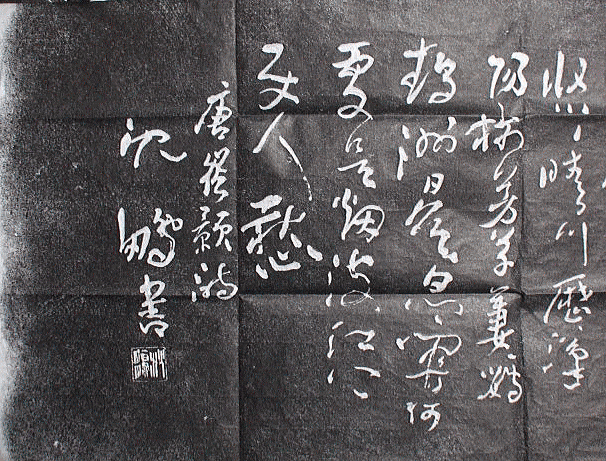 悠悠晴川歷歷漢
陽樹芳草萋萋鸚
鵡洲日暮鄉關何
處是煙波江上
使人愁
唐崔顥詩
沈鵬書
沈鵬